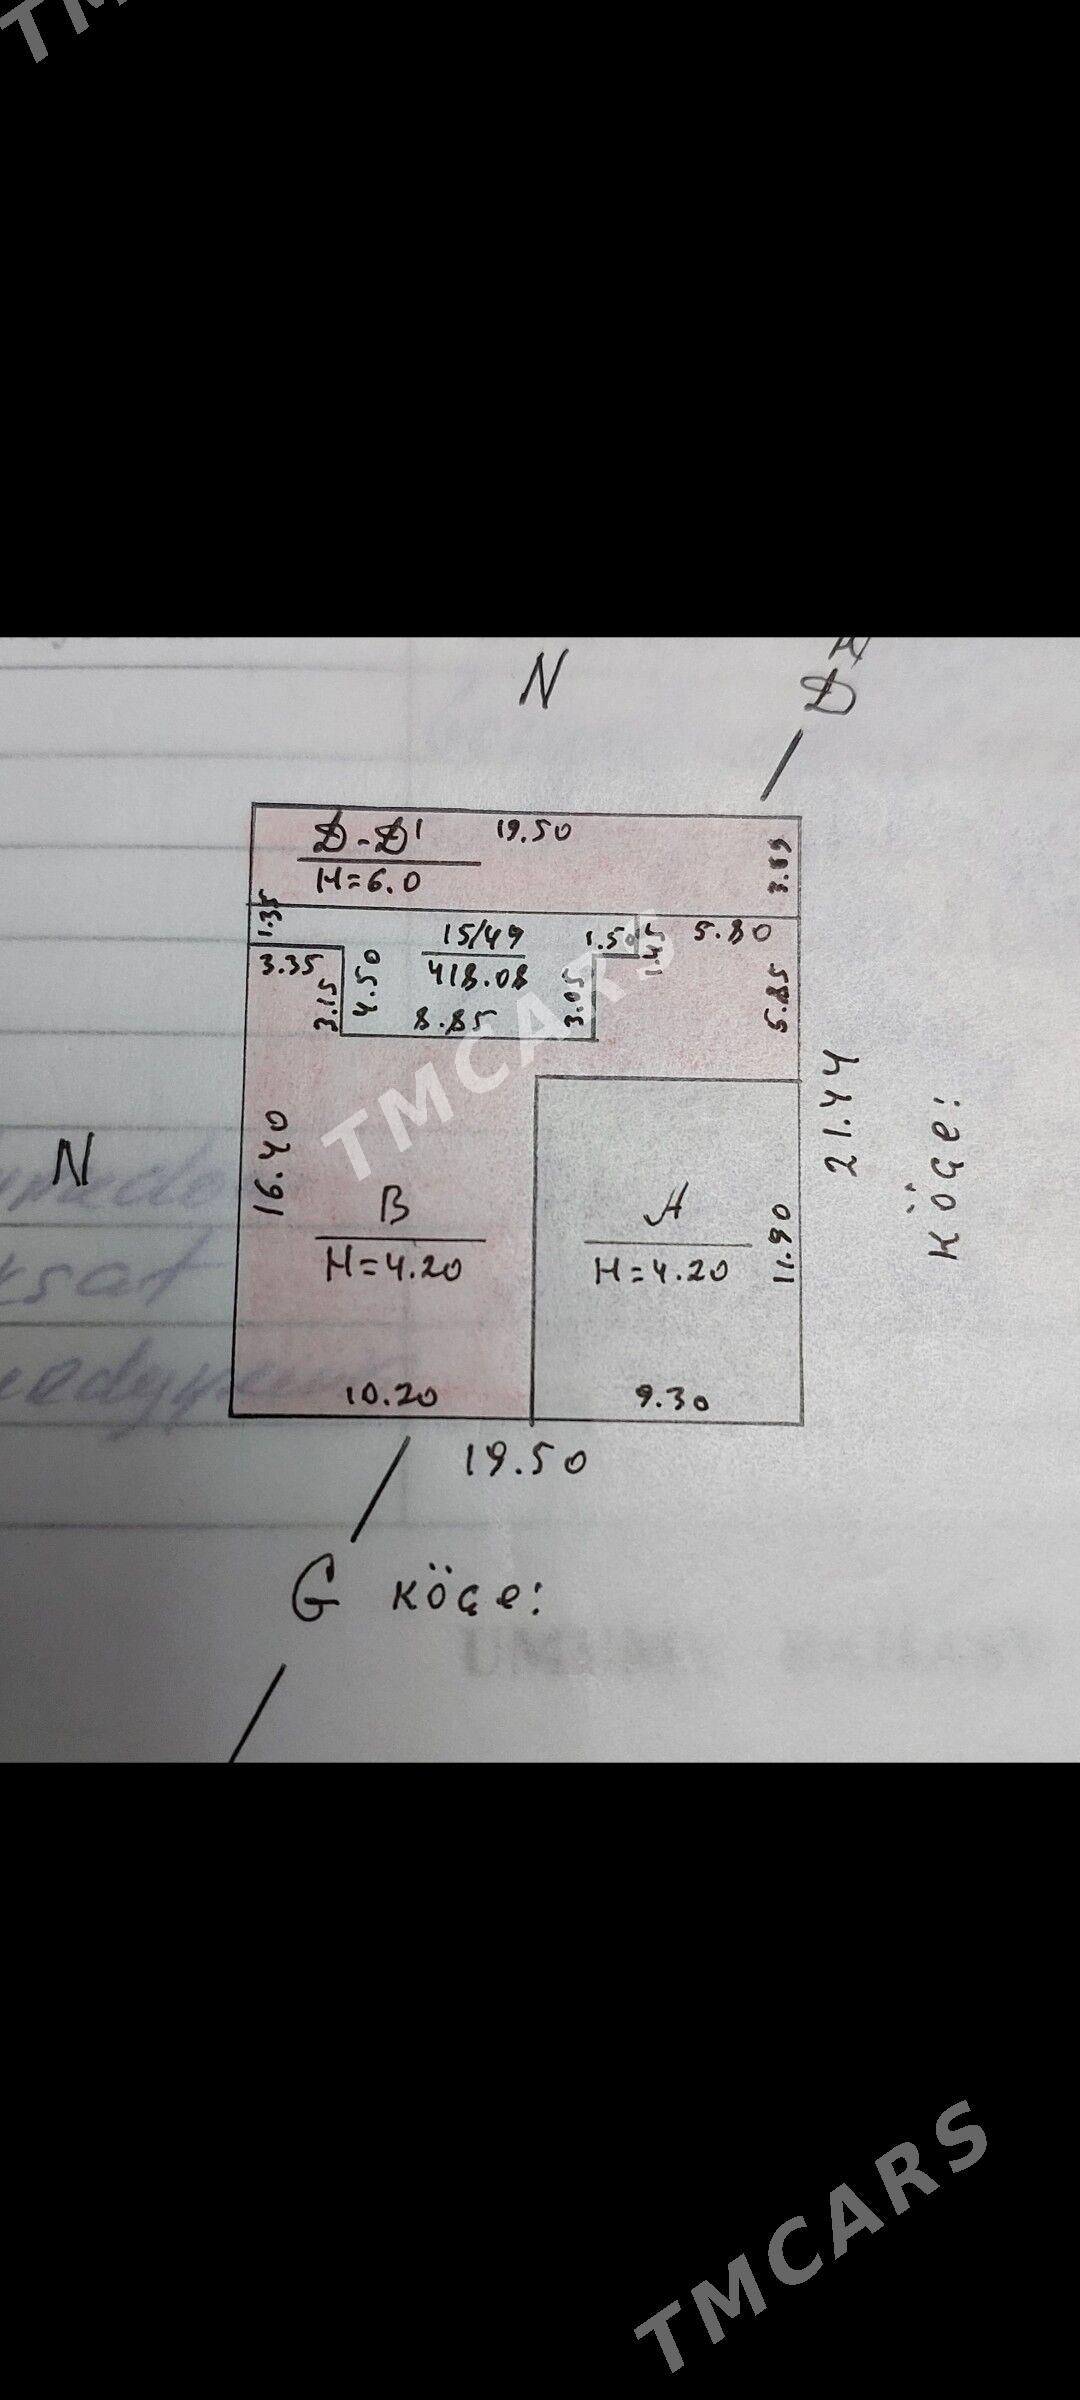 TMCARS
N
D
D-D¹
19.50
H=6.0
3.69
1.35
15/49
1.50
1.45
5.80
3.35
418.08
3.15
4.50
8.85
3.05
5.85
TMCARS
21.44
köçe:
N
16.40
B
H=4.20
A
H=4.20
11.90
10.20
9.30
19.50
G köçe:
TMCARS